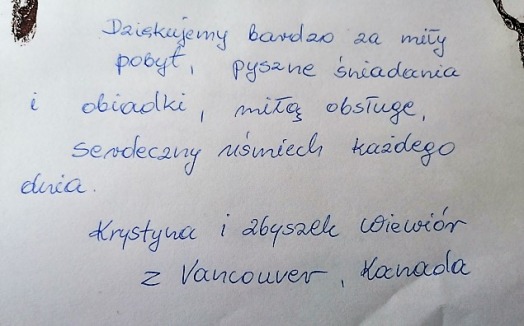 Dziękujemy bardzo za miły
pobyt, pyszne śniadania
i obiadki, miłą obsługę,
serdeczny uśmiech każdego
dnia.
Krystyna i Zbyszek Wiewiór
z Vancouver, Kanada